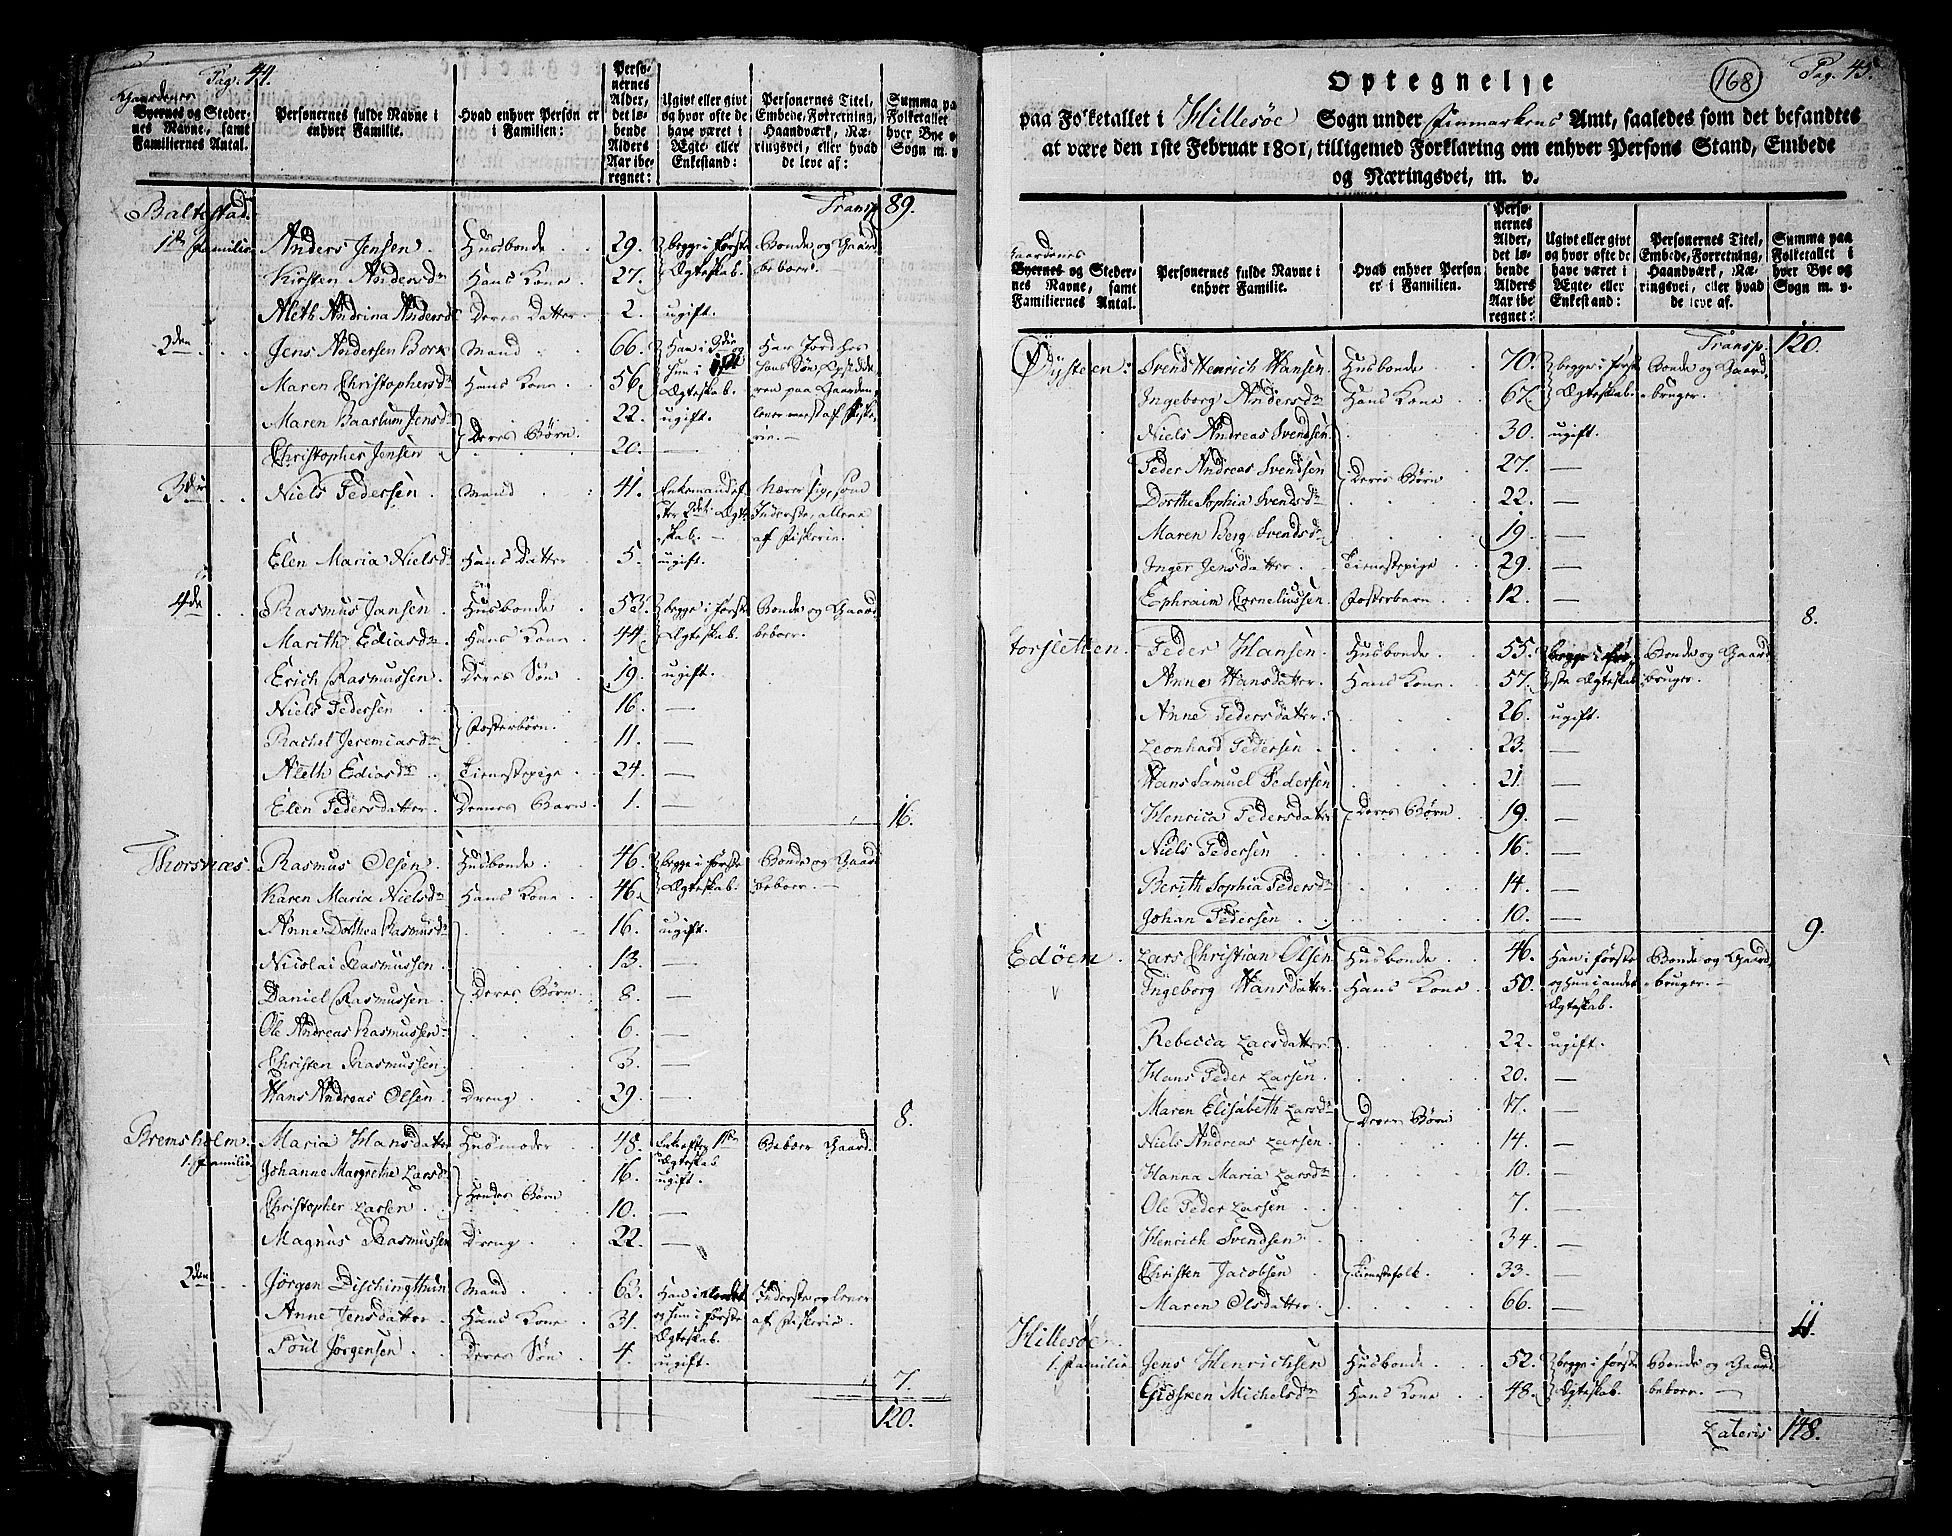 Pag. 44.
Gaardenes
Byernes og Stedernes Navne, samt Familiernes Antal.
Personernes fulde Navne i enhver Familie.
Hvad enhver Person er i Familien:
Personernes Alder, det løbende Alders Aar iberegnet:
Ugivt eller givt og hvor ofte de have været i Ægte- eller Enkestand:
Personernes Titel, Embede, Forretning, Haandværk, Næringsvei, eller hvad de leve af:
Summa paa Folketallet hver Bye Sogn m. v
Baltestad. Transp 89.
1ste Familie Anders Jensen Husbonde 29. begge i første Ægteskab. Bonde og Gaard beboer.
Kirsten Andersdr Hans Kone 27.
Aleth Andrina Andersdr Deres Datter 2. ugift.
2den Jens Andersen Bork Mand 66. Han i 3die og hun i Ægteskab.
Maren Christophersdr Hans Kone 56.
Maren Baarlum Jensdr Deres Børn 22. ugift.
Christopher Jensen 20. —
3die Niels Pedersen Mand 41. Enkemand efter 2det Ægteskab. Nærer sig, som Inderste, allene af Fiskerie.
Elen Maria Nielsdr Hans Datter 5. ugift.
4de Rasmus Jansen Husbonde 53. begge i første Ægteskab. Bonde og Gaard beboer.
Marith Ediasdr Hans Kone 44.
Erich Rasmussen Deres Søn 19. ugift.
Niels Pedersen Fosterbørn 16. —
Rachel Jeremiasdr 11. —
Aleth Ediasdr Tienestepige 24. —
Elen Pedersdatter Barn 1. — 16.
Thorsnæs. Rasmus Olsen Husbonde 46. begge i første Ægteskab. Bonde og Gaard beboer. —
Karen Maria Nielsdr Hans Kone 46.
Anne Dorthea Rasmusdr 16. ugift.
Nicolai Rasmussen 13. —
Daniel Rasmussen Deres Børn 8. —
Ole Andreas Rasmussen 6. —
Christen Rasmussen 3. —
Hans Andreas Olsen Dreng 29. — 8.
Bremsholm. 1. Familie Maria Hansdatter Husmoder 48. Enke efter 1ste Ægteskab Beboer Gaard.
Johanne Margrethe Larsdr Hendes Børn 16. ugift.
Christopher Larsen 10. —
Magnus Rasmussen Dreng 22. —
2den Jørgen Dischingthun Mand 63. Han i og hun i første Ægteskab. Inderste og lever af Fiskerie.
Anne Jensdatter Hans Kone 31.
Poul Jørgensen Deres Søn 4. ugift.
7.
120.
168
Pag. 45.
Optegnelse
paa Folketallet i Hillesøe Sogn under Finmarkens Amt, saaledes som det befandtes
at være den 1ste Februar 1801, tilligemed Forklaring om enhver Persons Stand, Embede
og Næringsvei, m. v.
Gaardenes
Byernes og Stedernes Navne, samt Familiernes Antal.
Personernes fulde Navne i enhver Familie.
Hvad enhver Person er i Familien.
Personernes Alder, det løbende Alders Aar iberegnet:
Ugivt eller givt og hvor ofte de have været i Ægte- eller Enkestand:
Personernes Titel, Embede, Forretning, Haandværk, Næringsvei, eller hvad de leve af.
Summa paa Folketallet i hver Bye og Sogn m. v.
Transp. 120.
Øysteen: Svend Henrich Hansen. Husbonde 70. begge i første Ægteskab. Bonde og Gaardbruger.
Ingeborg Andersdr Hans Kone 67.
Niels Andreas Svendsen 30. ugift.
Peder Andreas Svendsen Deres Børn 27. —
Dorthe Sophia Svendsdr 22. —
Maren Berg Svendsdr 19. —
Inger Jensdatter Tienestepige 29. —
Ephraim Corneliussen Fosterbarn 12. — 8.
Torsletten. Peder Hansen Husbonde 55. begge i første Ægteskab Bonde og Gaardbruger.
Anne Hansdatter Hans Kone 57.
Anne Pedersdatter 26. ugift.
Leonhard Pedersen 23. —
Hans Samuel Pedersen 21. —
Henrica Pedersdatter Deres Børn 19. —
Niels Pedersen 16. —
Berith Sophia Pedersdr 14. —
Johan Pedersen 10. — 9.
Edøen. Lars Christian Olsen Husbonde 46. Han i første og hun i andet Ægteskab. Bonde og Gaardbruger. —
Ingeborg Hansdatter Hans Kone 50.
Rebecca Larsdatter 22. ugift.
Hans Peder Larsen 20. —
Maren Elisabeth Larsdr Deres Børn 17. —
Niels Andreas Larsen 14. —
Hanna Maria Larsdr 10. —
Ole Peder Larsen 7. —
Henrich Svendsen 34. —
Christen Jacobsen Tienestefolk 33. —
Maren Olsdatter 66. — 11.
Hillesøe. 1. Familie Jens Henrichsen Husbonde 52. begge i første Ægteskab. Bonde og Gaard beboer. —
Gidsken Michelsdr Hans Kone 48.
Lateris 148.